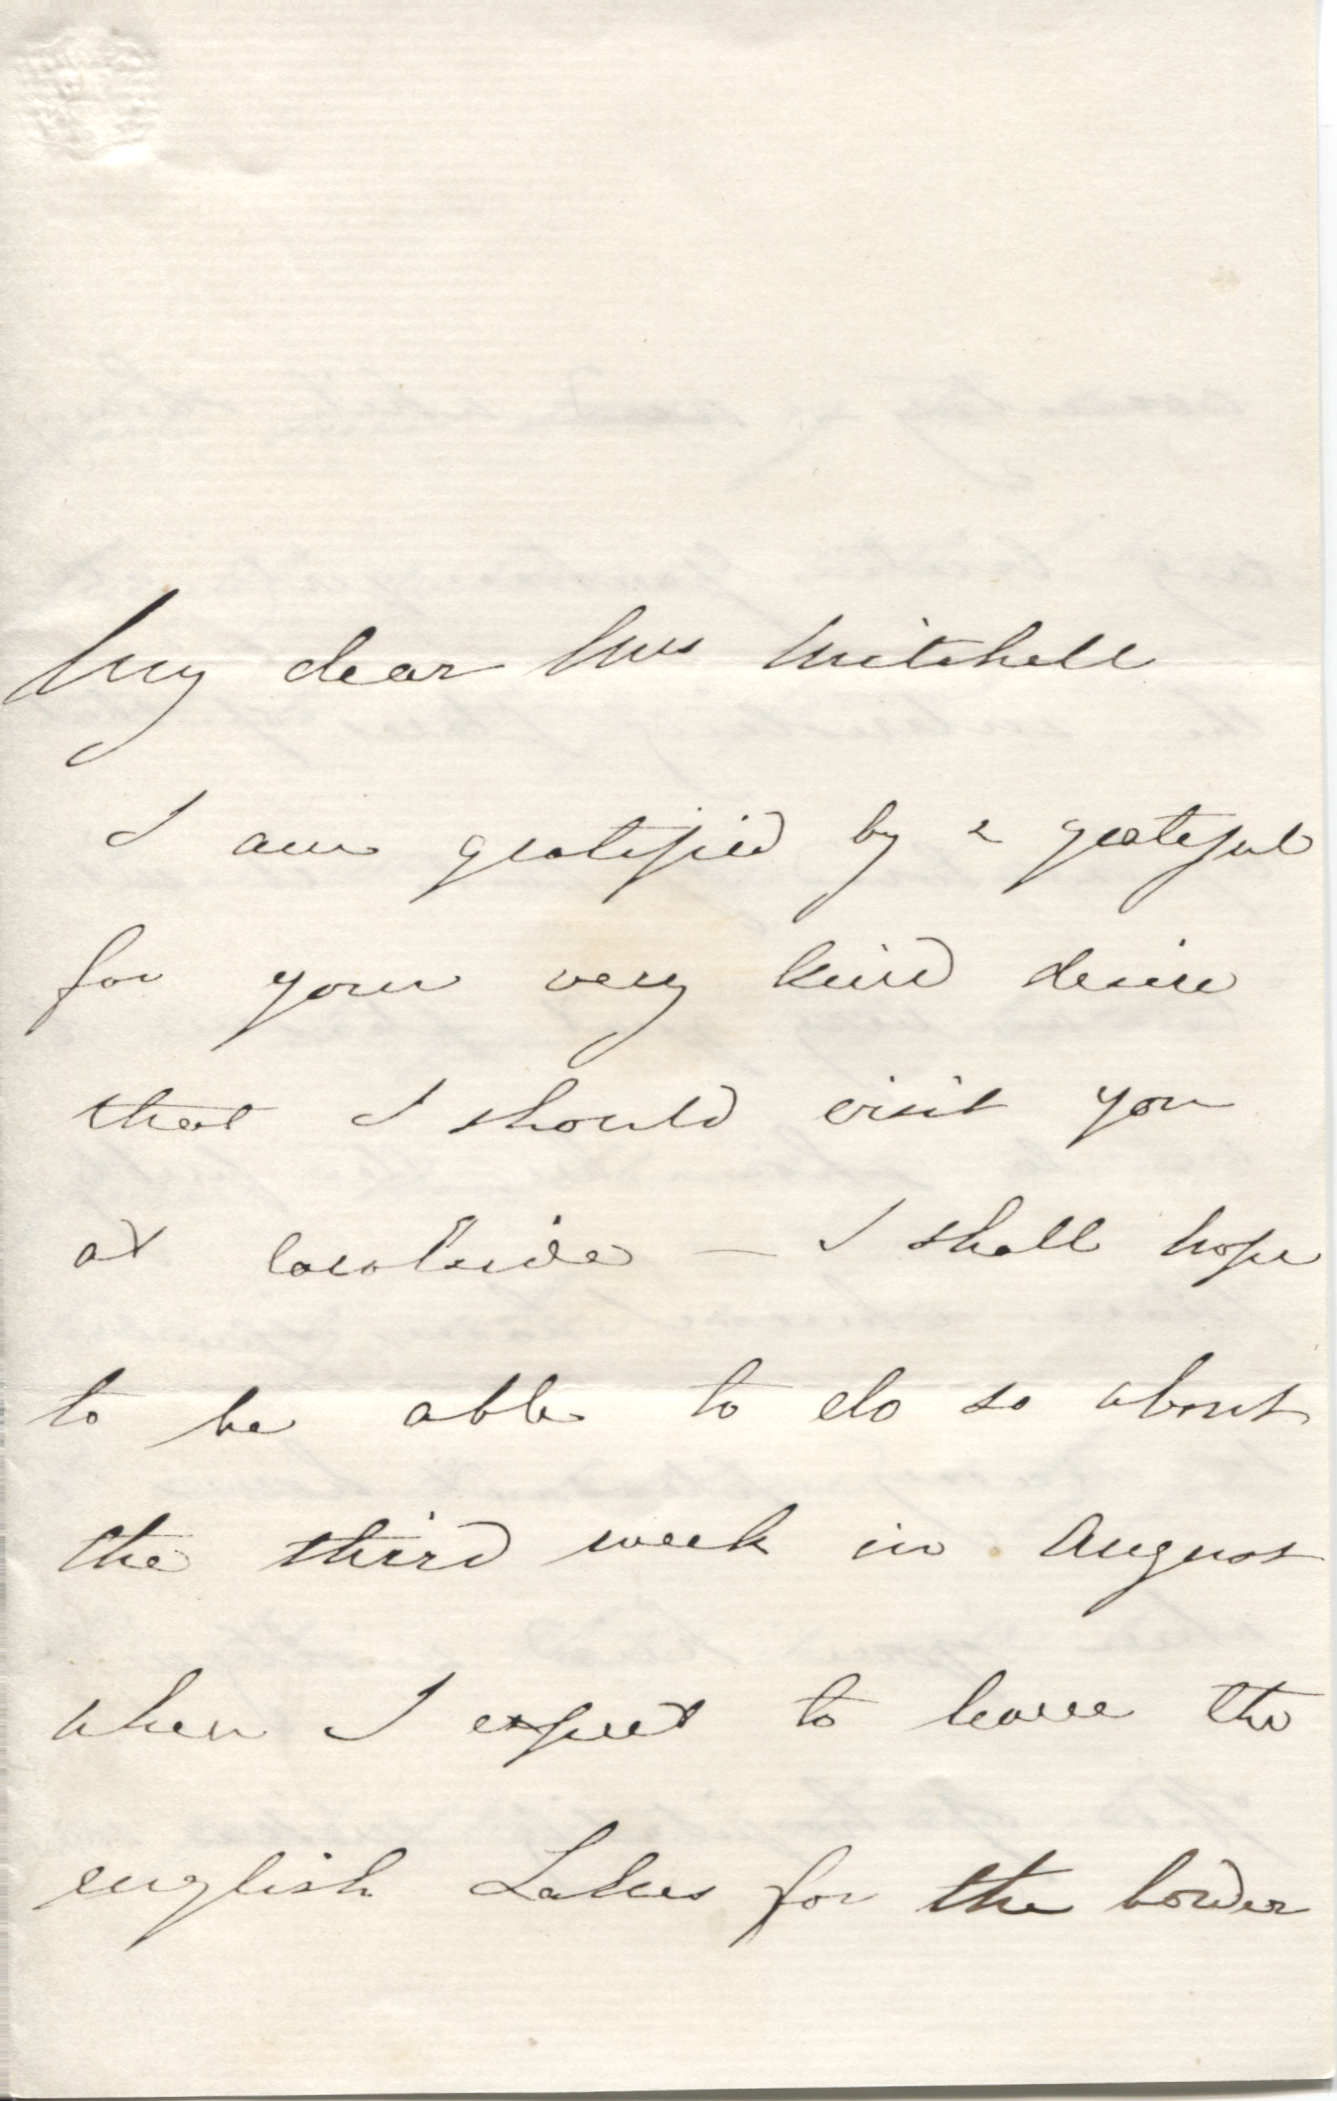 My dear Mrs Mitchell
I am gratified by & grateful
for your very kind desire
that I should visit you
at — I shall hope
to be able to do so about
the third week in August
when I expect to leave the
english Lakes for the border